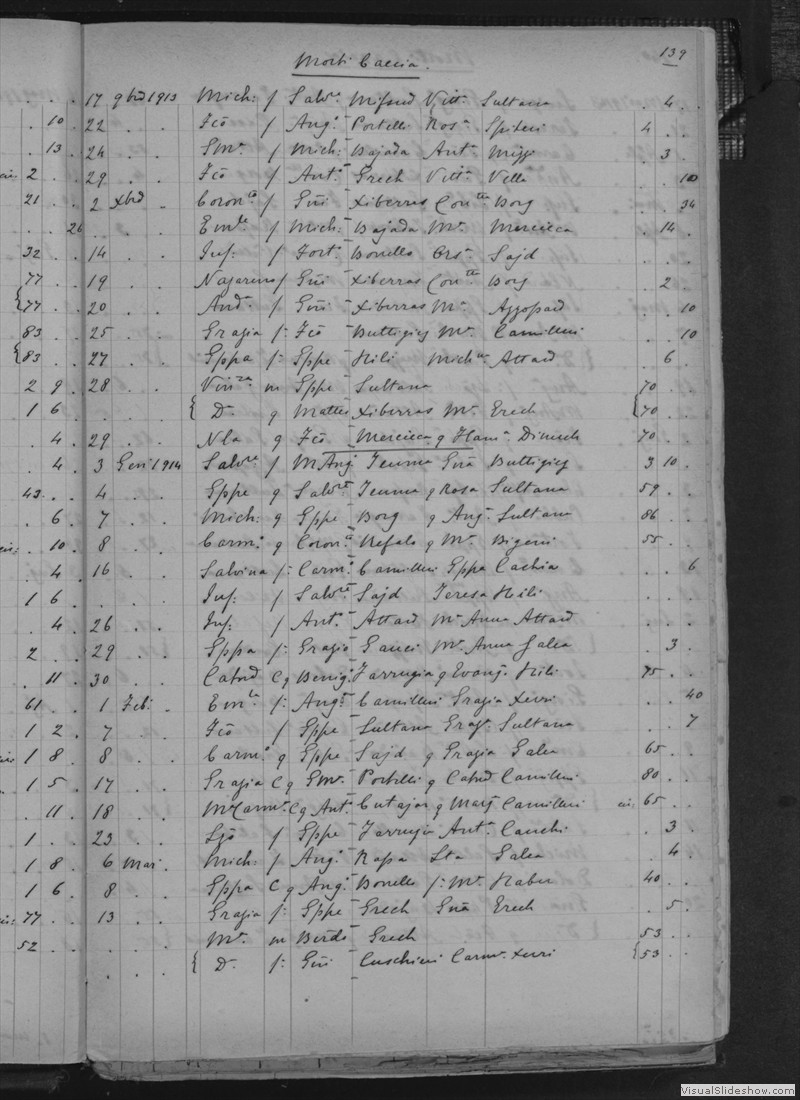 139
Morti Caccia.
. . . 17 9brd 1913 Mich: f Salv.re Mifsud Vitt.a Sultana . 4 .
. 10 . 22 . . Fco f Ang.o Portelli Ros.a Spiteri 4 . .
. 13 . 24 . . Gm.a f Mich: Bajada Ant.a Mizzi . 3 .
2 . . 29 . . Fco f Ant.o Grech Vitt.a Vella . . 10
21 . . 2 Xbrd . Coron.to f Gius Xiberras Con.tta Borg . . 24
. . 26 . . Em.le f Mich: Bajada M.a Mercieca . 14 .
32 . . 14 . . Inf: f Fort.o Bonello Ors.a Sajd . . .
77 . . 19 . . Nazareno f Gius Xiberras Con.tta Borg . 2 .
{77 . . 20 . . And.a f Gius Xiberras M.a Azzopard . . 10
83 . . 25 . . Grazia f: Fco Buttigieg M.a Camilleri . . 10
{83 . . 27 . . Gppa f: Gppe Hili Mich.na Attard . 6 .
2 9 . 28 . . Vin.za m Gppe Sultana 70 . .
1 6 . . . . { D.a q Matteo Xiberras M.a Grech {70 . .
. 4 . 29 . . Nla q Fco Mercieca q Dimech 70 . .
. 4 . 3 Gen: 1914 Salv.re f M Ang.o Teuma Buttigieg 3 10 .
43 . . 4 . . Gppe q Salv.re Teuma q Rosa Sultana 59 . .
. 6 . 7 . . Mich: q Gppe Borg q Ang.a Sultana 86 . .
. 10 . 8 . . Carm.o q Coron.to Refalo q M.a Bigeni 55 . .
. 4 . 16 . . Salvina f: Carm.o Camilleri Gppa Cachia . . 6
1 6 . . . . Inf: f Salv.re Sajd Teresa Hili . . .
. 4 . 26 . . Inf: f Ant.o Attard M.a Anna Attard . . .
2 . . 29 . . Gppa f: Grazio Gauci M.a Anna Galea . 3 .
. 11 . 30 . . Catnd C q Benig.o Farrugia q Evang.a Hili 75 . .
61 . . 1 Feb: . Em.la f: Ang.o Camilleri Grazia Xerri . . 40
1 2 . 7 . . Fco f Gppe Sultana Graz.a Sultana . . 7
1 8 . 8 . . Carm.o q Gppe Sajd q Grazia Galea 65 . .
1 5 . 17 . . Grazia C q Gm.a Portelli q Catnd Camilleri 80 . .
. 11 . 18 . . M Carm.a C q Ant.o Cutajar q Marg Camilleri 65 . .
1 . . 23 . . f Gppe Farrugia Ant.a Cauchi . 3 .
1 8 . 6 Mar. . Mich: f Ang.o Rapa Galea . 4 .
1 6 . 8 . . Gppa C q Ang.o Bonello f: M.a Haber 40 . .
77 . . 13 . . Grazia f: Gppe Grech Grech . 5 .
52 . . . . . M.a m Grech 53 . .
. . . { D.a f: Gius Cuschieri Carm.a Xerri {53 . .
VisualSlideshow.com